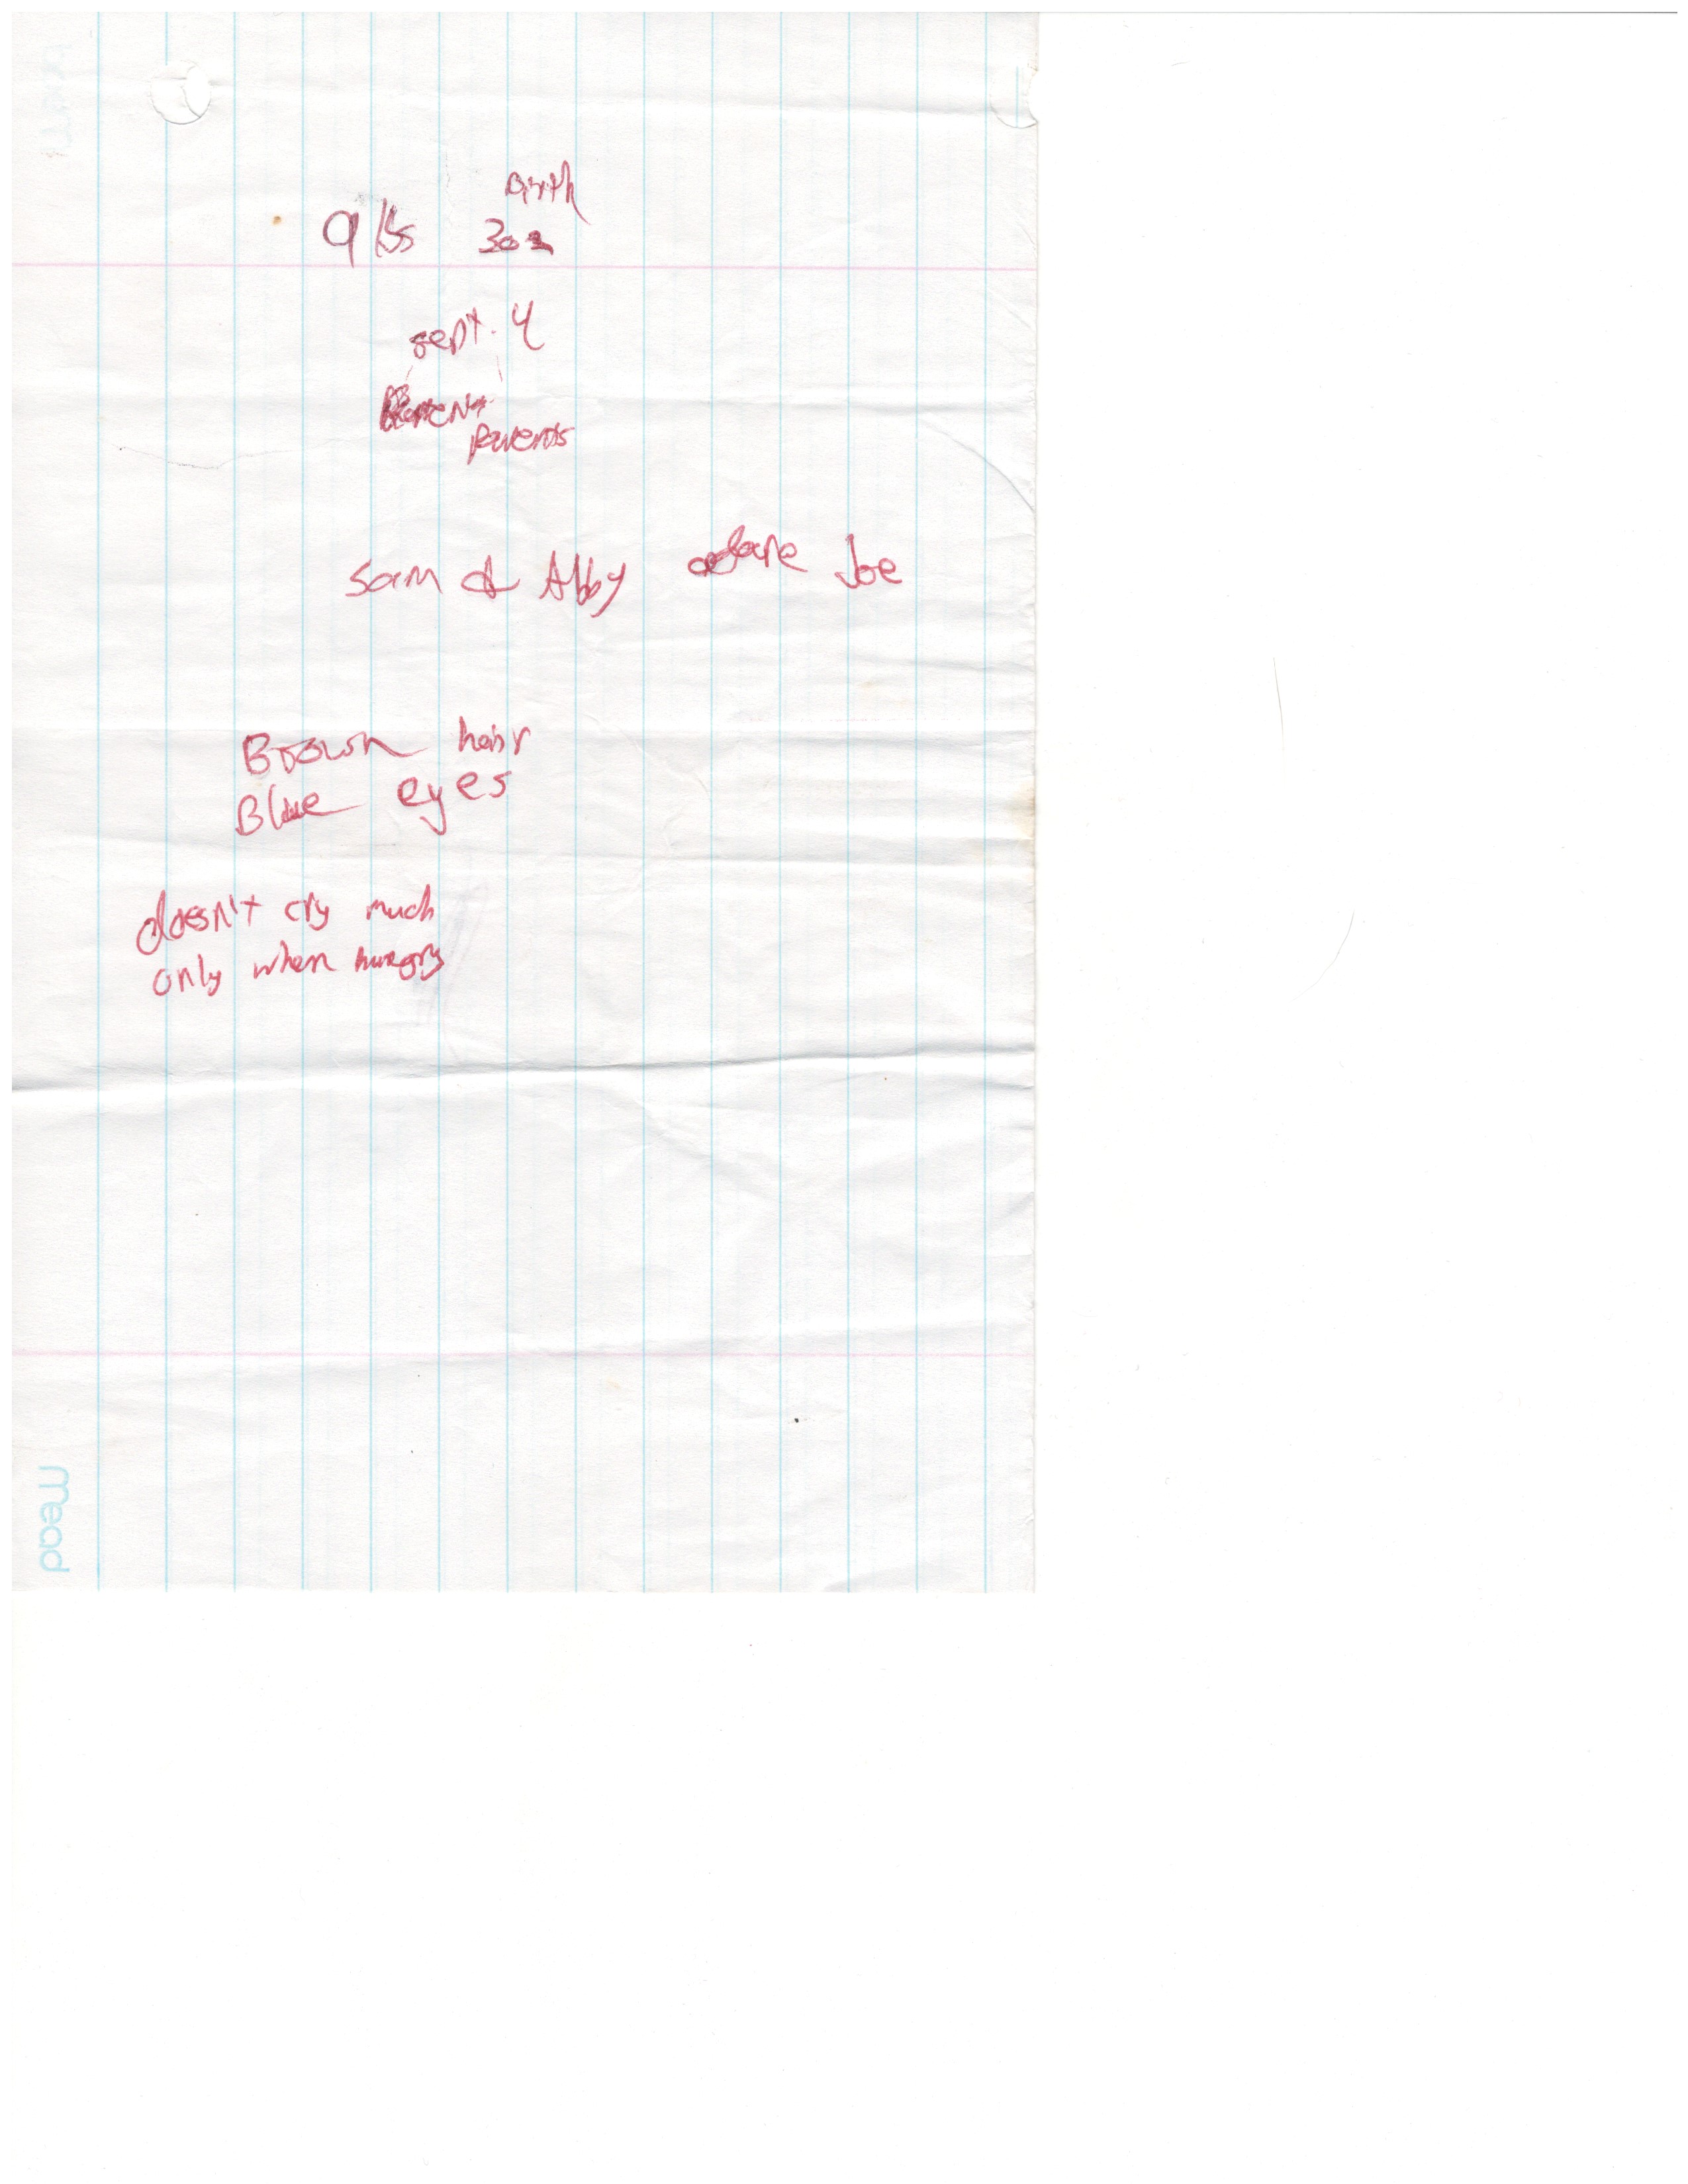 Birth
9 lbs 3oz
sept. 4
Parents
Sam & Abby Jane Joe
Brown hair
Blue eyes
doesn't cry much
only when hungry
mead